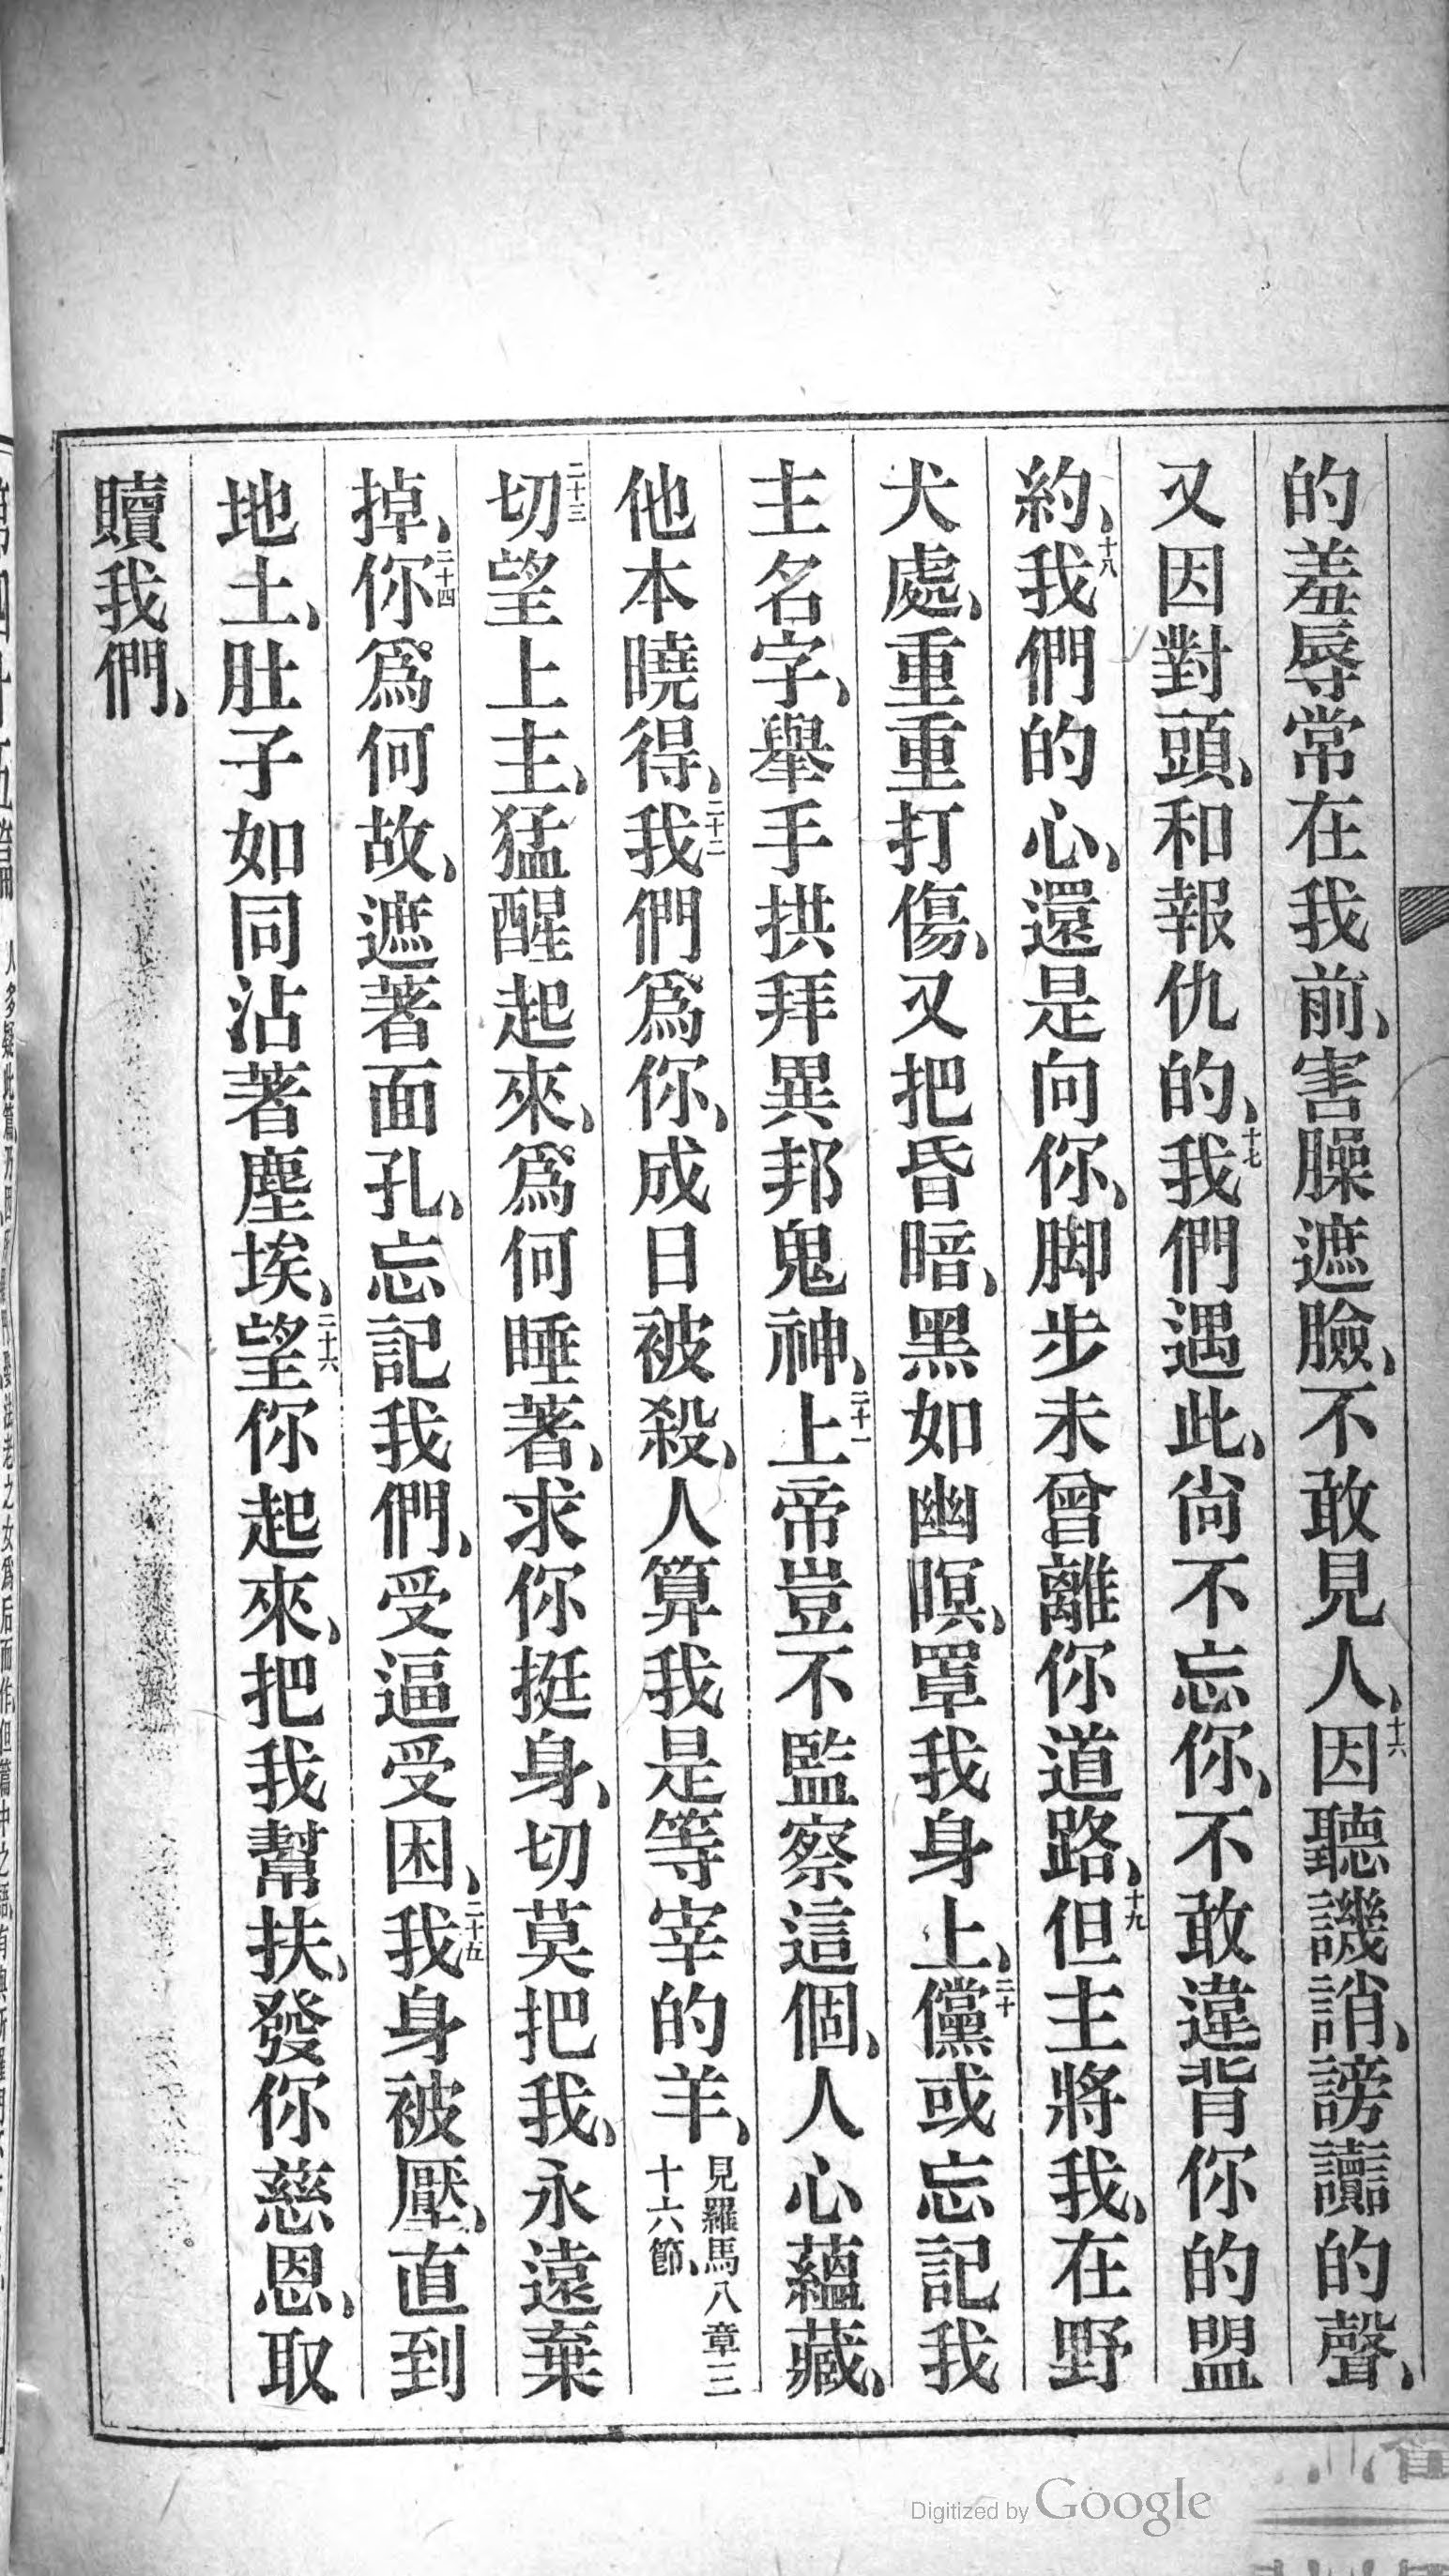 的羞辱常在我前、害臊遮臉、不敢見人、十六因聽譏誚、謗讟的聲、
又因對頭、和報仇的、十七我們遇此、尚不忘你、不敢違背你的盟
約、十八我們的心、還是向你、脚步未曾離你道路、十九但主將我、在野
犬處、重重打傷、又把昏暗、黑如幽暝、罩我身上、二十儻或忘記我
主名字、舉手拱拜異邦鬼神、二十一上帝豈不監察這個、人心蘊藏、
他本曉得、二十二我們爲你、成日被殺、人算我是等宰的羊、見羅馬八章三
十六節、
二十三切望上主、猛醒起來、爲何睡著、求你挺身、切莫把我、永遠棄
掉、二十四你爲何故、遮著面孔、忘記我們、受逼受困、二十五我身被壓、直到
地土、肚子如同沾著塵埃、二十六望你起來、把我幫扶、發你慈恩、取
贖我們、
Digitized by Google